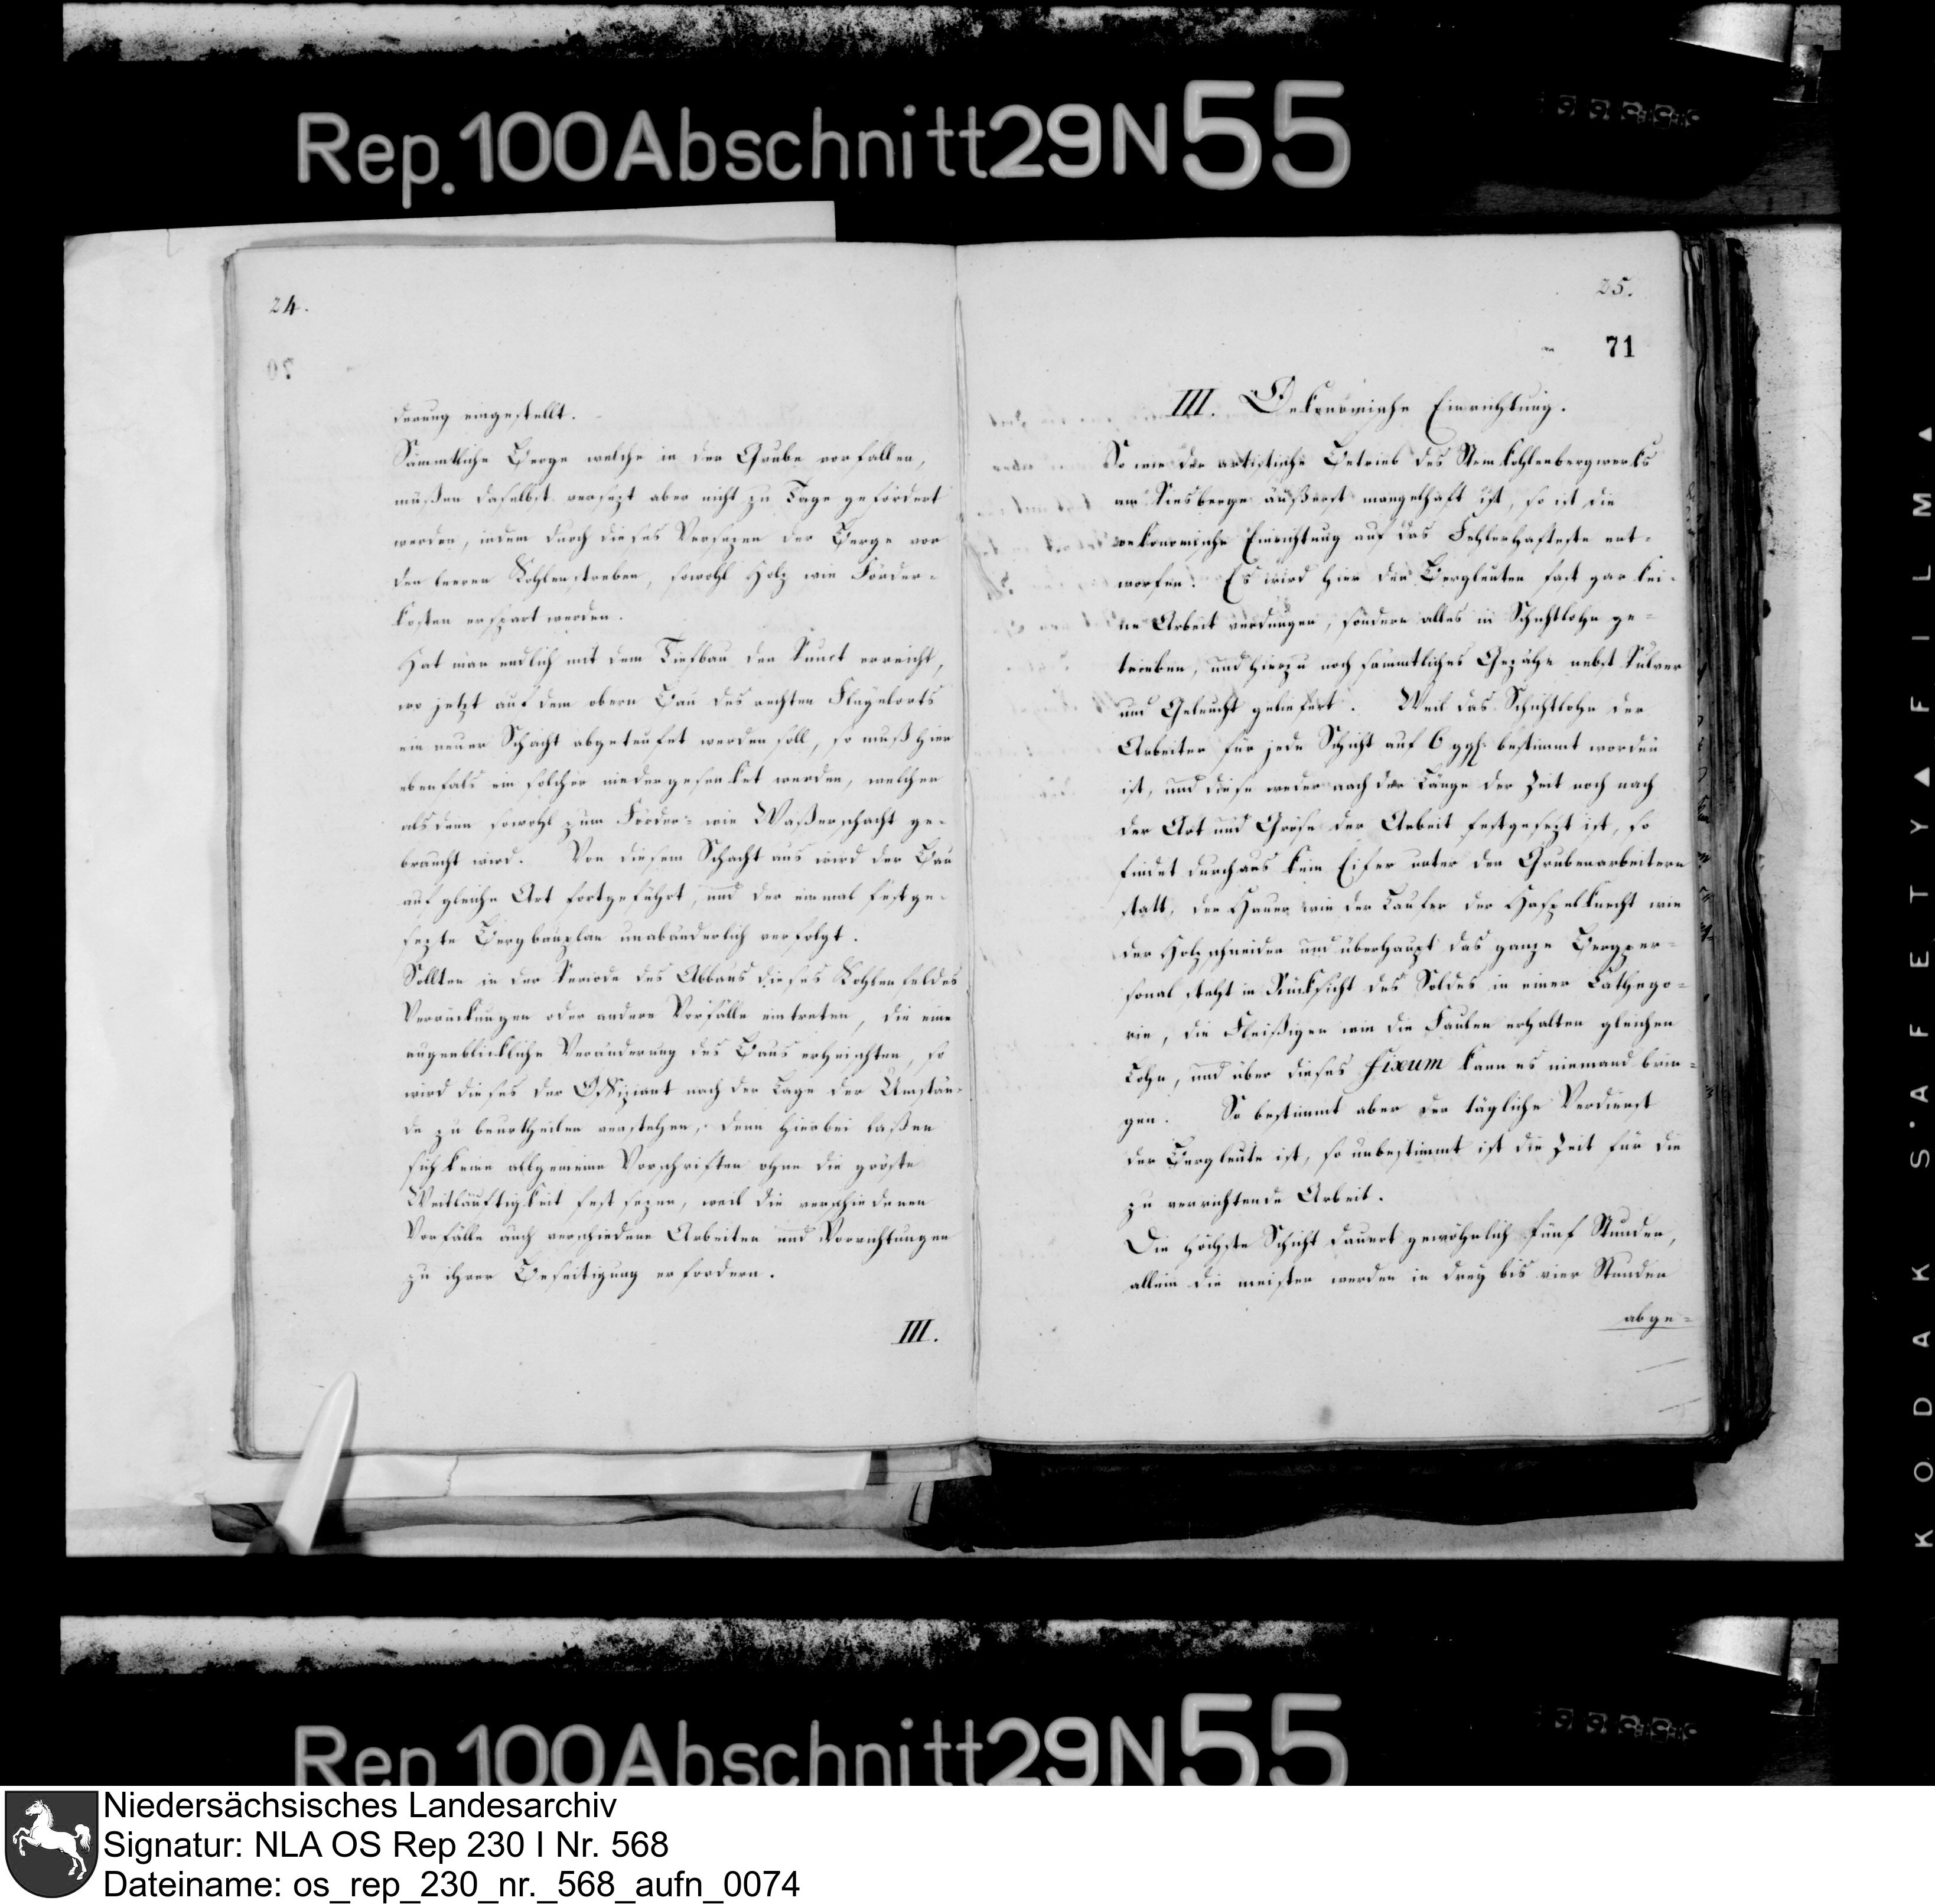 Rep. 100 Abschnitt 29 N 55
24.
derung eingestellt.
Sämmtliche Berge welche in der Grube vorfallen,
müßen daselbst versezt aber nicht zu Tage gefördert
werden, indem durch dieses Versezen der Berge vor
den leeren Kohlenstreben, sowohl Holz wie Förder-
kosten erspart werden.
Hat man endlich mit dem Tiefbau den Punct erreicht,
wo jetzt auf dem obern Bau des rechten Flügelorts
ein neuer Schacht abgeteufet werden soll, so muß hier
ebenfals ein solcher niedergesenket werden, welcher
alsdenn sowohl zum Förder- wie Waßerschacht ge-
braucht wird. Von diesem Schacht aus wird der Bau
auf gleiche Art fortgeführt, und der einmal festge-
sezte Bergbauplan unabänderlich verfolgt.
Sollten in der Periode des Abbaus dieses Kohlenfeldes
Verrückungen oder andere Vorfälle eintreten, die eine
augenblickliche Veränderung des Baus erheischten, so
wird dieses der Offiziant nach der Lage der Umstän-
de zu beurtheilen verstehen, denn hierbei laßen
sich keine allgemeine Vorschriften ohne die gröste
Weitläuftigkeit fest sezen, weil die verschiedenen
Vorfälle auch verschiedene Arbeiten und Vorrichtungen
zu ihrer Beseitigung erfordern.
III.
25.
71
III. Oekonomische Einrichtung.
So wie der artistische Betrieb des Steinkohlenbergwerks
am Piesberge äußerst mangelhaft ist, so ist die
oekonomische Einrichtung auf das Fehlerhafteste ent-
worfen. Es wird hier den Bergleuten fast gar kei-
ne Arbeit verdungen, sondern alles in Schichtlohn ge-
trieben, und hierzu noch sämmtliches Gezähe nebst Pulver
und Geleucht geliefert. Weil das Schichtlohn der
Arbeiter für jede Schicht auf 6 ggh. bestimmt worden
ist, und diese weder nach der Länge der Zeit noch nach
der Art und Gröse der Arbeit festgesezt ist, so
findet durchaus kein Eifer unter den Grubenarbeitern
statt, der Hauer wie der Laufer der Haspelknecht wie
der Holzschneider und überhaupt das ganze Bergper-
sonal steht in Rücksicht des Soldes in einer Cathego-
rie, die Fleißigen wie die Faulen erhalten gleichen
Lohn, und über dieses fixum kann es niemand brin-
gen. So bestimmt aber der tägliche Verdienst
der Bergleute ist, so unbestimmt ist die Zeit für die
zu verrichtende Arbeit.
Die höchste Schicht dauert gewöhnlich fünf Stunden,
allein die meisten werden in drey bis vier Stunden
abge-
KODAK SAFETY FILM
Rep 100 Abschnitt 29 N 55
Niedersächsisches Landesarchiv
Signatur: NLA OS Rep 230 I Nr. 568
Dateiname: os_rep_230_nr._568_aufn_0074